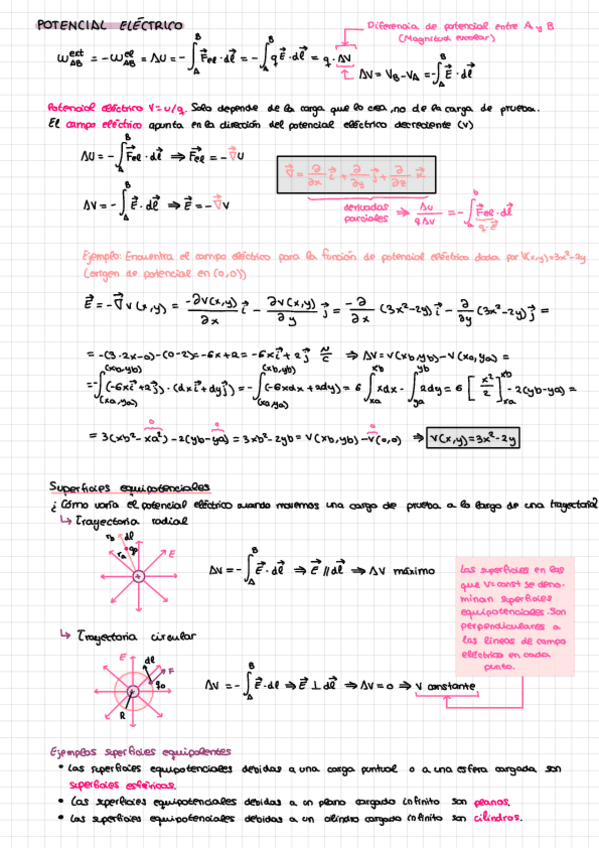 POTENCIAL ELÉCTRICO
Diferencia de potencial entre A y B
(Magnitud escalar)
W_AB^ext = -W_AB^el = ΔU = -∫_A^B F⃗el · dl⃗ = -∫_A^B q E⃗ · dl⃗ = q · ΔV
ΔV = V_B - V_A = -∫_A^B E⃗ · dl⃗
Potencial eléctrico V = U/q. Solo depende de la carga que lo crea, no de la carga de prueba.
El campo eléctrico apunta en la dirección del potencial eléctrico decreciente (V)
ΔU = -∫_A^B F⃗el · dl⃗ ⇒ F⃗el = -∇⃗U
∇⃗ = ∂/∂x i⃗ + ∂/∂y j⃗ + ∂/∂z k⃗
ΔV = -∫_A^B E⃗ · dl⃗ ⇒ E⃗ = -∇⃗V
derivadas parciales ⇒ ΔU/qΔV = -∫_A^B F⃗el · dl⃗
q·E⃗
Ejemplo: Encuentra el campo eléctrico para la función de potencial eléctrico dada por V(x,y)=3x²-2y
(origen de potencial en (0,0))
E⃗ = -∇⃗V(x,y) = -∂V(x,y)/∂x i⃗ - ∂V(x,y)/∂y j⃗ = -∂/∂x (3x²-2y) i⃗ - ∂/∂y (3x²-2y) j⃗ =
= -(3·2x-0)-(0-2) = -6x+2 = -6x i⃗ + 2 j⃗ N/C ⇒ ΔV = V(xb,yb) - V(xa,ya) =
= -∫_(xa,ya)^(xb,yb) (-6x i⃗ + 2 j⃗) · (dx i⃗ + dy j⃗) = -∫_(xa,ya)^(xb,yb) (-6xdx + 2dy) = 6 ∫_xa^xb xdx - ∫_ya^yb 2dy = 6 [x²/2]_xa^xb - 2(yb-ya) =
= 3(xb² - xa²) - 2(yb-ya) = 3xb² - 2yb = V(xb,yb) - V(0,0) ⇒ V(x,y) = 3x² - 2y
0 0 0
Superficies equipotenciales
¿Cómo varía el potencial eléctrico cuando movemos una carga de prueba a lo largo de una trayectoria?
↳ Trayectoria radial
rb dl
ra q0 E
ΔV = -∫_A^B E⃗ · dl⃗ ⇒ E⃗ // dl⃗ ⇒ ΔV máximo
Las superficies en las
que V=const se deno-
minan superficies
equipotenciales. Son
perpendiculares a
las líneas de campo
eléctrico en cada
punto.
↳ Trayectoria circular
E dl F
q0
R
ΔV = -∫_A^B E⃗ · dl ⇒ E⃗ ⊥ dl⃗ ⇒ ΔV = 0 ⇒ V constante
Ejemplos superficies equipotentes
• Las superficies equipotenciales debidas a una carga puntual o a una esfera cargada son
superficies esféricas.
• Las superficies equipotenciales debidas a un plano cargado infinito son planos.
• Las superficies equipotenciales debidas a un cilindro cargado infinito son cilindros.